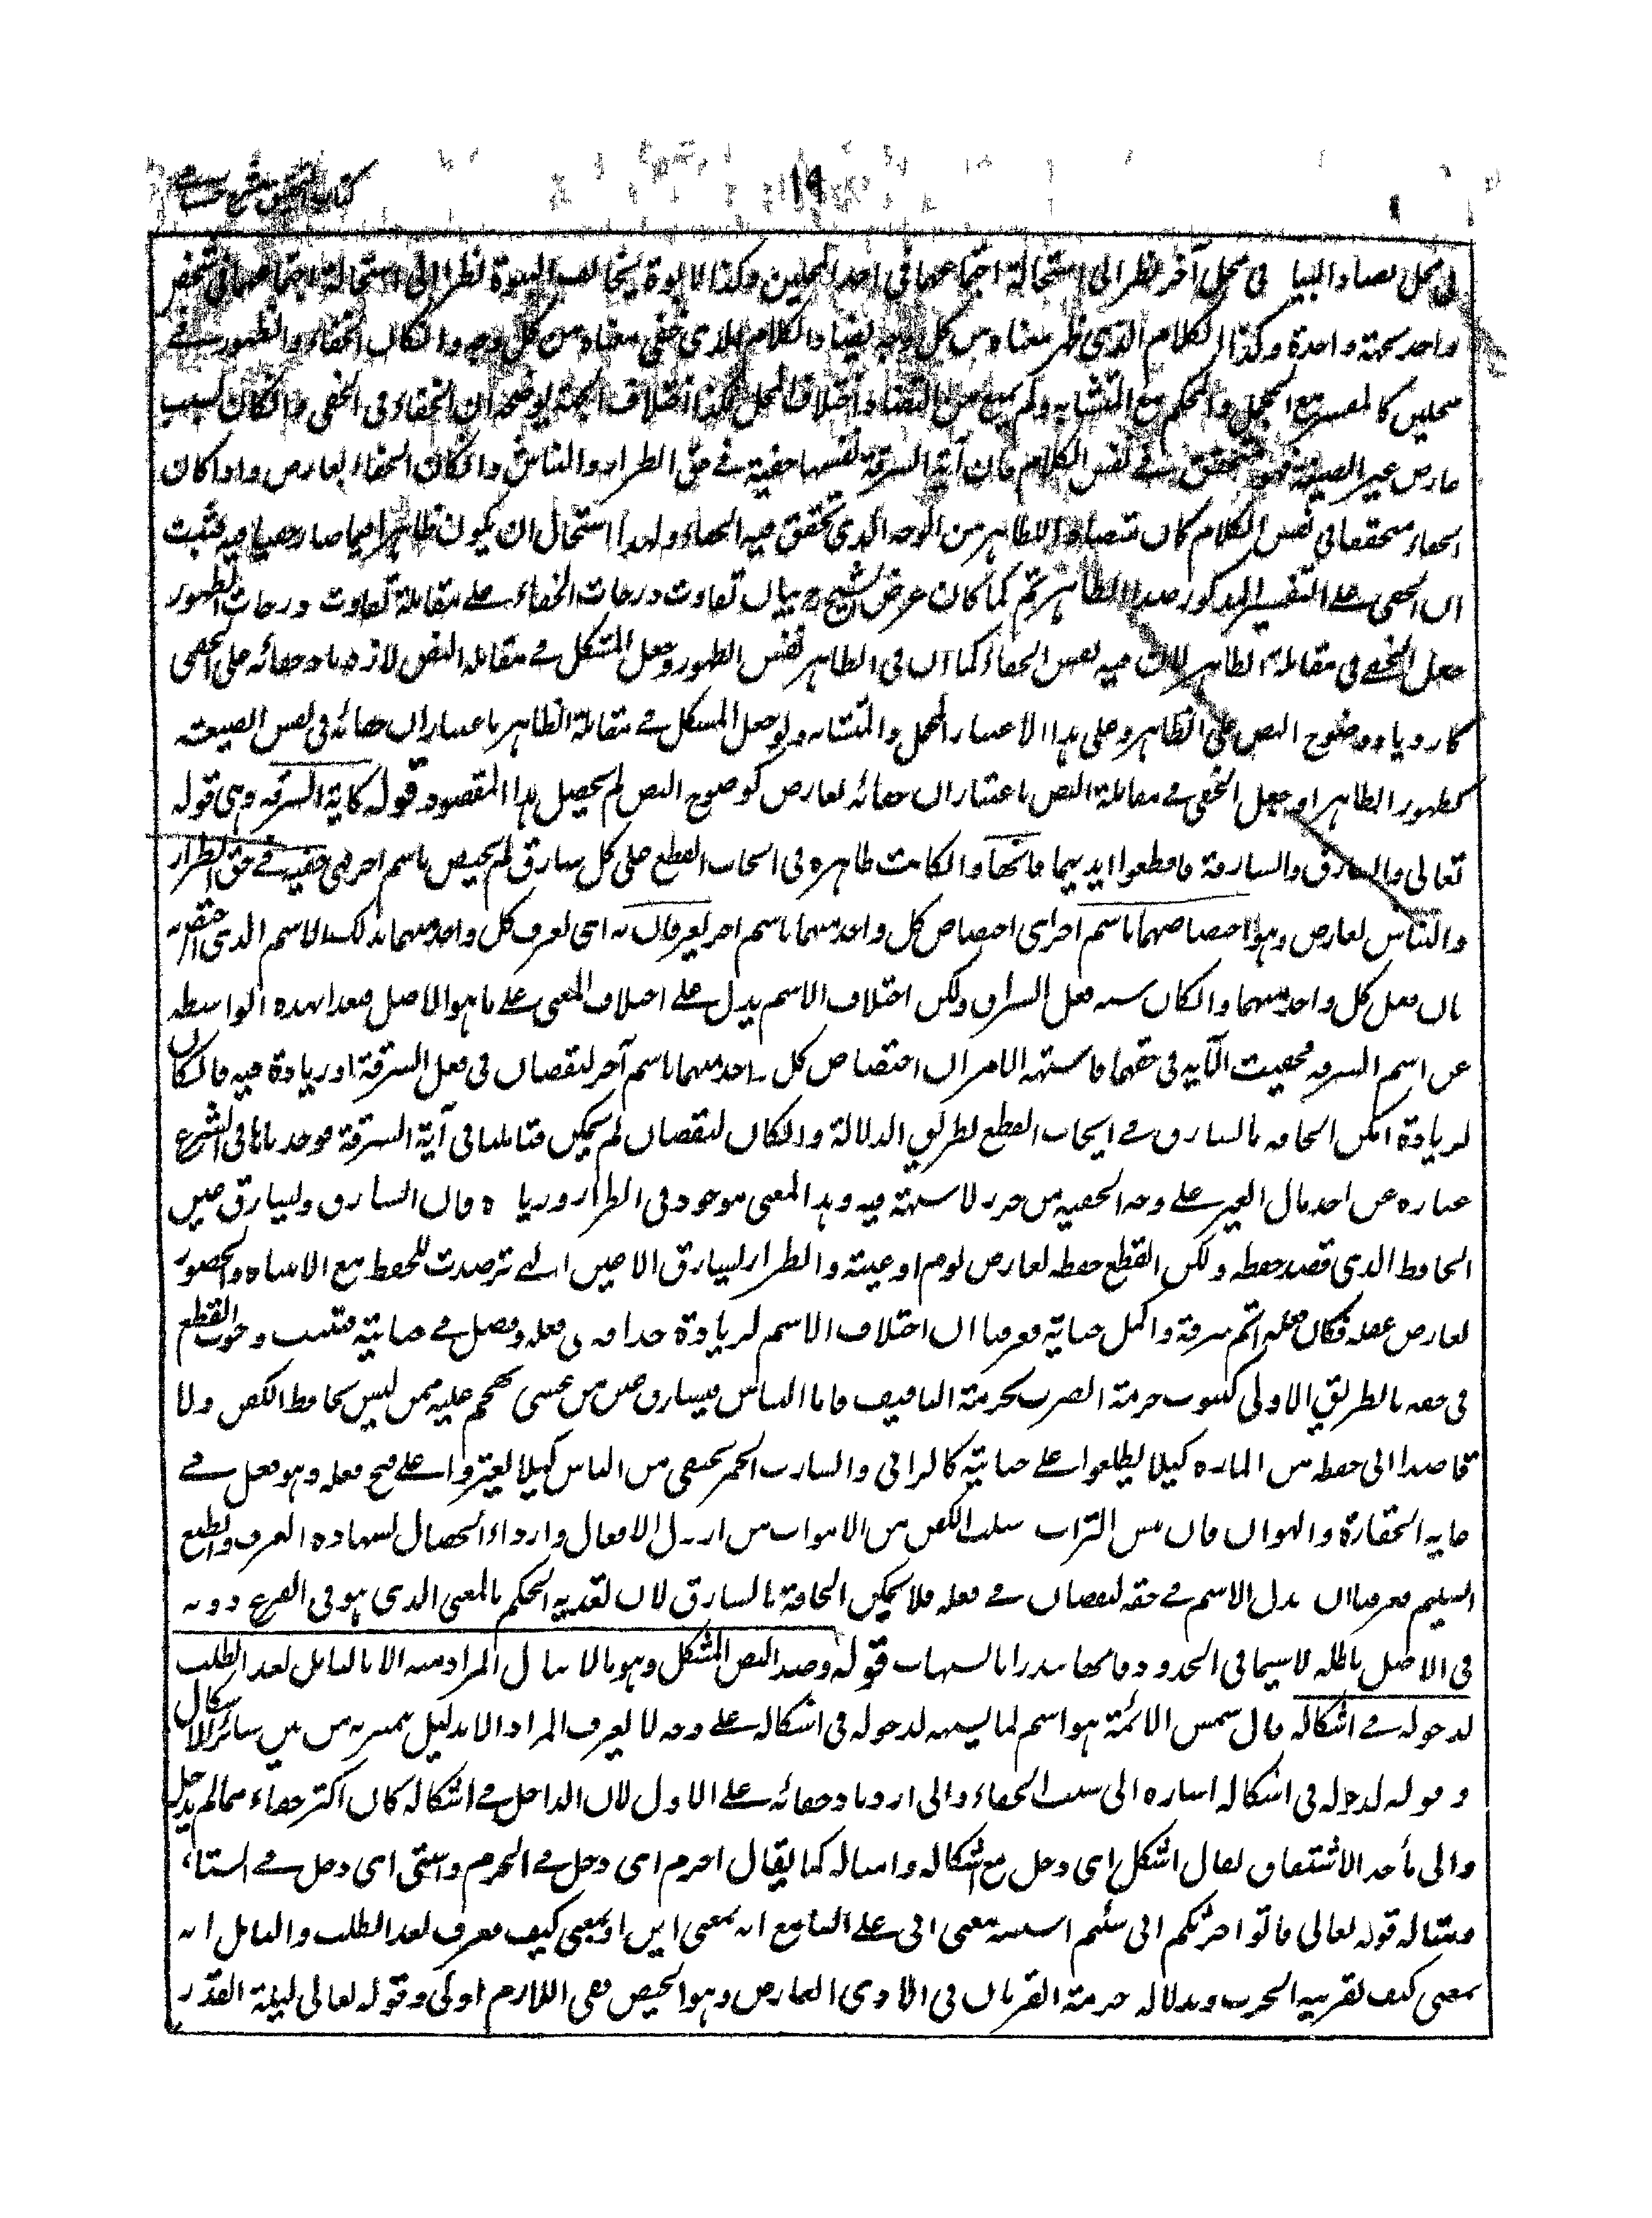 كتاب التحقيق شرح حسامي
19
في محل يضاد البياض في محل آخر نظرا الى استحالة اجتماعهما في احد المحلين وكذا الابوة يخالف البنوة نظرا الى استحالة اجتماعهما في شخص
واحد بجهة واحدة وكذا الكلام الذي ظهر معناه من كل وجه يضاد الكلام الذي خفي معناه من كل وجه وانكان الخفاء والظهور في
محلين كالمفسر مع المجمل والمحكم مع المتشابه ولم يمنع من التضاد اختلاف المحل فكذا اختلاف الجهة يوضحه ان الخفاء في الخفي وانكان بسبب
عارض غير الصيغة فهو متحقق في نفس الكلام فان آية السرقة نفسها خفية في حق الطرار والنباش وانكان الخفاء لعارض واذا كان
الخفاء متحققا في نفس الكلام كان متضادا للظاهر من الوجه الذي تحقق فيه الخفاء ولهذا استحال ان يكون ظاهرا فيما صار خفيا فيه فثبت
ان الخفي على التفسير المذكور ضد للظاهر ثم كما كان غرض الشيخ رح بيان تفاوت درجات الخفاء على مقابلة تفاوت درجات الظهور
جعل الخفي في مقابلة الظاهر لان فيه نفس الخفاء كما ان في الظاهر نفس الظهور وجعل المشكل في مقابلة النص لازدياد خفائه على الخفي
كازدياد وضوح النص على الظاهر وعلى هذا الاعتبار المجمل والمتشابه ولو جعل المشكل في مقابلة الظاهر باعتبار ان خفائه في نفس الصيغة
كظهور الظاهر او جعل الخفي في مقابلة النص باعتبار ان خفائه لعارض كوضوح النص لم يحصل هذا المقصود قوله كآية السرقة وهي قوله
تعالى والسارق والسارقة فاقطعوا ايديهما فانها وان كانت ظاهرة في ايجاب القطع على كل سارق لم يختص باسم آخر فهي خفية في حق الطرار
والنباش لعارض وهو اختصاصهما باسم آخر اي اختصاص كل واحد منهما باسم آخر يعرفان به اي يعرف كل واحد منهما بذلك الاسم الذي اختص به
فان فعل كل واحد منهما وانكان يشبه فعل السراق ولكن اختلاف الاسم يدل على اختلاف المعنى على ما هو الاصل فبعدا بهذه الواسطة
عن اسم السرقة فخفيت الآية في حقهما فاشتبه الامر ان اختصاص كل واحد منهما باسم آخر لنقصان في فعل السرقة او زيادة فيه فانكان
لزيادة امكن الحاقه بالسارق في ايجاب القطع بطريق الدلالة وانكان لنقصان لم يمكن فتاملنا في آية السرقة فوجدناها في الشرع
عبارة عن اخذ مال الغير على وجه الخفية من حرز لا شبهة فيه وهذا المعنى موجود في الطرار وزيادة فان السارق يسارق عين
الحافظ الذي قصد حفظه ولكن انقطع حفظه لعارض نوم او غيبة والطرار يسارق الاعين التي ترصدت للحفظ مع الانتباه والحضور
لعارض غفلة فكان فعله اتم سرقة واكمل جناية فعرفنا ان اختلاف الاسم لزيادة حذاقة في فعله وفضل في جنايته فثبت وجوب القطع
في حقه بالطريق الاولى كثبوت حرمة الضرب بحرمة التافيف فاما النباش فيسارق عين من عسى يهجم عليه ممن ليس بحافظ الكفن ولا
قاصدا الى حفظه من المارة كيلا يطلعوا على جنايته كالزاني والشارب الخمر يختفي من الناس كيلا يعثروا على قبح فعله وهو فعل في
غاية الحقارة والهوان فان نبش التراب سلب الكفن من الاموات من ارذل الافعال واردأ الخصال بشهادة العرف والطبع
السليم فعرفنا ان تبدل الاسم في حقه لنقصان في فعله فلا يمكن الحاقه بالسارق لان تعدية الحكم بالمعنى الذي هو في الفرع دونه
في الاصل باطلة لا سيما في الحدود فانها تندرأ بالشبهات قوله وضد النص المشكل وهو ما لا ينال المراد منه الا بالتامل بعد الطلب
لدخوله في اشكاله قال شمس الائمة هو اسم لما يشتبه لدخوله في اشكاله على وجه لا يعرف المراد الا بدليل يتميز به من بين سائر الاشكال
وقوله لدخوله في اشكاله اشارة الى سبب الخفاء والى ازدياد خفائه على الاول لان الداخل في اشكاله كان اكثر خفاء مما لم يدخل
والى مأخذ الاشتقاق يقال اشكل اي دخل مع اشكاله وامثاله كما يقال احرم اي دخل في الحرم واشتى اي دخل في الشتاء
ومثاله قوله تعالى فاتوا حرثكم انى شئتم اشتبه معنى انى على السامع انه بمعنى اين او بمعنى كيف فعرف بعد الطلب والتامل انه
بمعنى كيف لقرينة الحرث وبدلالة حرمة القربان في الاذى العارض وهو الحيض ففي اللازم اولى وقوله تعالى ليلة القدر